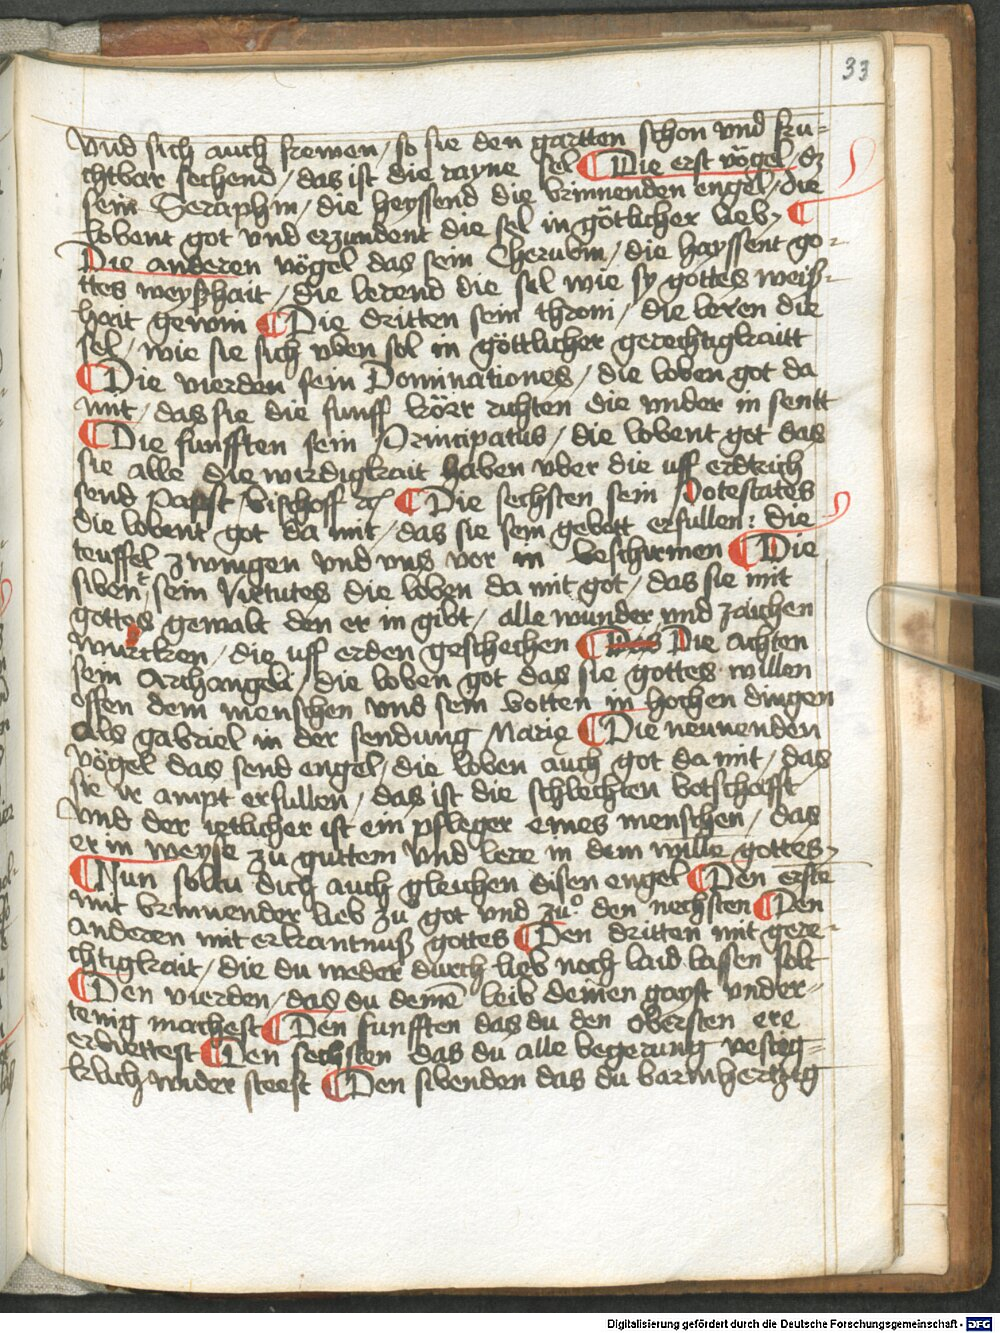 33
vnd sich auch frewen / so sie den gartten schon vnd fru-
chtbar sechend / das ist die rayne sel ¶ Die erst vögel / dz
sein Seraphin / die heyssend die brinnenden engel / die
lobent got vnd erzundent die sel in götlicher lieb / ¶
Die anderen vögel das sein Cherubin / die hayssent go-
ttes weyßhait / die lerend die sel wie sy gottes weiß-
hait gewin ¶ Die dritten sein throni / die leren die
sel / wie sie sich vben sol in göttlicher gerechtigkaitt
¶ Die vierden sein Dominationes / die loben got da
mit / das sie die funff körr richten die vnder in sentt
¶ Die funfften sein Principatus / die lobent got das
sie alle die wirdigkait haben vber die uff erdtrich
send Papst Bischoff ꝛc ¶ Die sechsten sein Potestates
die lobent got da mit / das sie sein gebott erfullen: die
teuffel zwingen vnd vns vor in beschirmen ¶ Die
sibent sein Virtutes die loben da mit got / das sie mit
gottes gewalt den er in gibt / alle wunder vnd zaichen
wurcken / die uff erden geschechen ¶ Die Die achten
sein Archangeli / die loben got das sie gottes willen
offen dem menschen vnd sein botten in hochen dingen
Als gabriel in der sendung Marie ¶ Die neunenden
vögel das send engel / die loben auch got da mit / das
sie ir ampt erfullen / das ist die schlechten botschafft
vnd der ietlicher ist ein pfleger eines menschen / das
er in weyse zu guttem vnd lere in dem wille gottes /
¶ Nun soltu dich auch gleichen disen engel ¶ Den erste
mit brinnender lieb zu got vnd zu den nechsten ¶ Den
anderen mit erkantnuß gottes ¶ Den dritten mit gere-
chtigkait / die du weder durch lieb noch laid lassen solt
¶ Den vierden / das du deinē leib deinen gayst vnder-
tenig machest ¶ Den funfften das du den obersten ere
erbiettest ¶ Den sechsten das du alle begerung vestig-
klich vnder steest ¶ Den sibenden das du barmhertzig
Digitalisierung gefördert durch die Deutsche Forschungsgemeinschaft - DFG